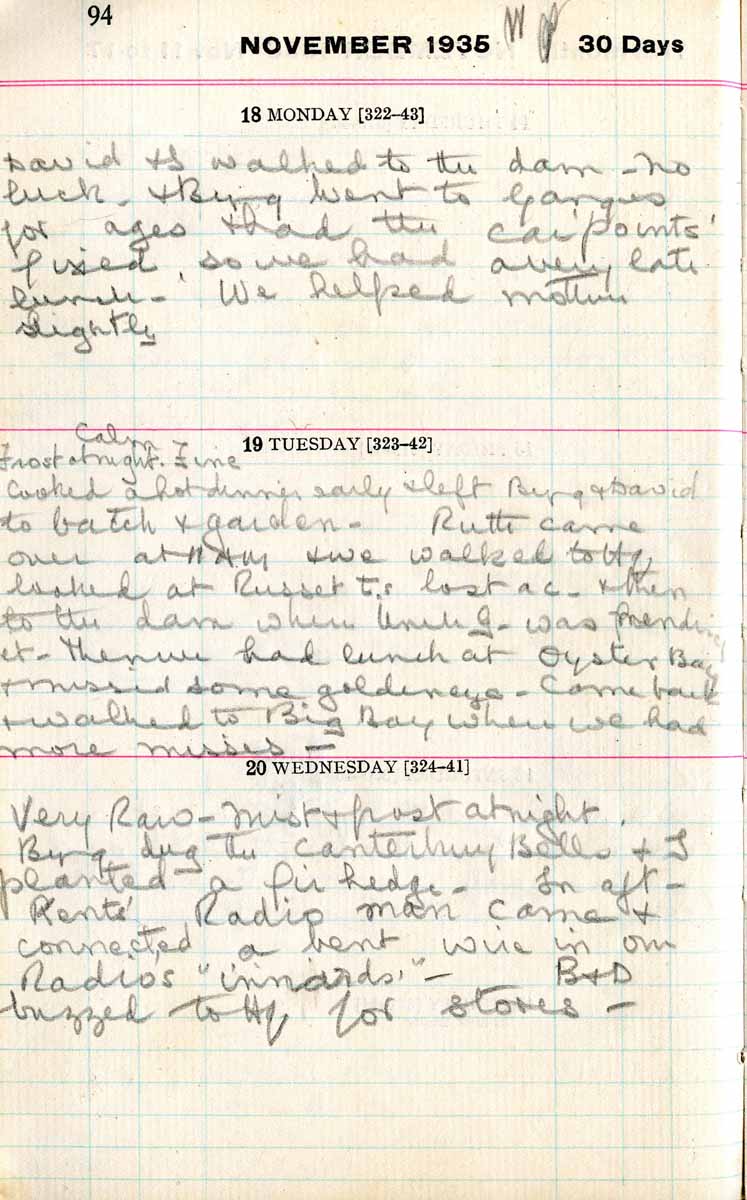 94
NOVEMBER 1935 30 Days
18 MONDAY [322–43]
David & I walked to the dam - no
luck - & Byng went to Ganges
for ages & had the car 'points'
fixed, so we had a very late
lunch - We helped mother
slightly
19 TUESDAY [323–42]
Calm
Frost at night. Fine
Cooked a hot dinner early & left Byng & David
to batch & garden - Ruth came
over at 11 AM & we walked to Hg,
looked at Russet T.s lost ac. & then
to the dam where Uncle G. was mending
it - Then we had lunch at Oyster Bay
& missed some goldeneye - Came back
& walked to Big Bay where we had
more misses -
20 WEDNESDAY [324–41]
Very Raw - Mist & frost at night.
Byng dug the Canterbury Bells & I
planted a fir hedge - In aft -
Kents' Radio man came &
connected a bent wire in our
Radios "innards." - B & D
buzzed to Hg for stores -